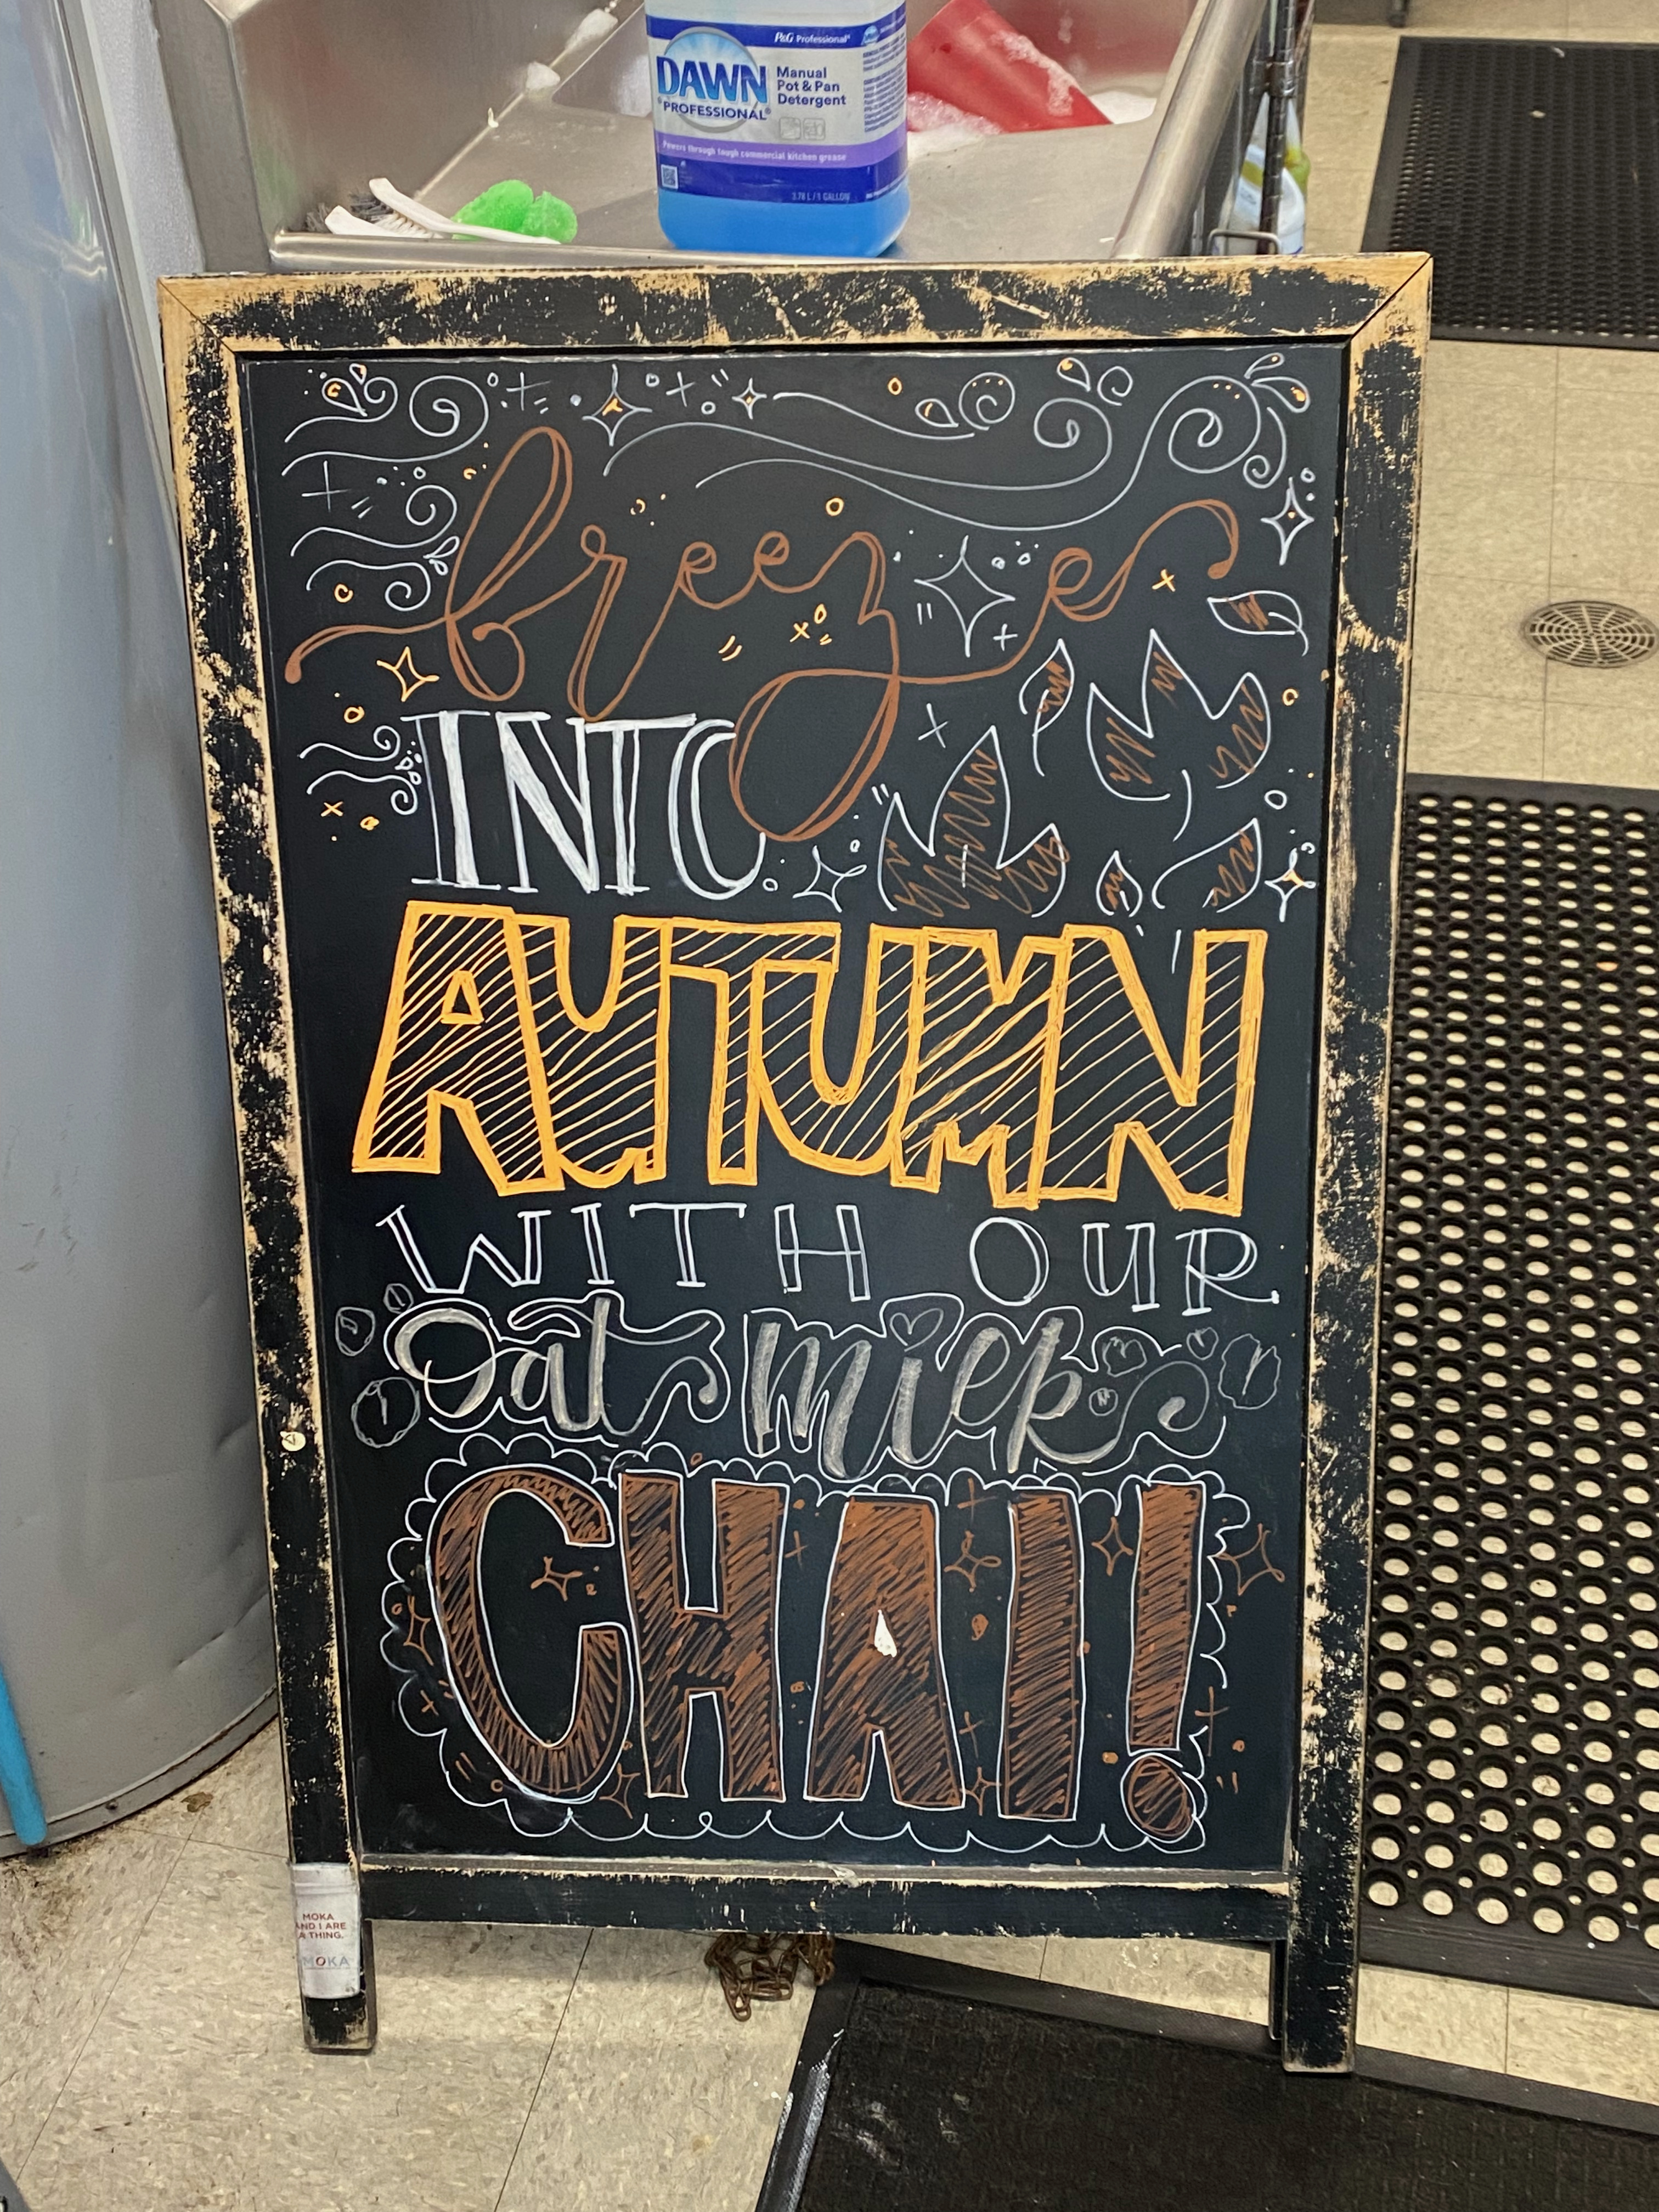 P&G Professional
DAWN
PROFESSIONAL®
Manual
Pot & Pan
Detergent
Powers through tough commercial kitchen grease
3.78 L / 1 GALLON
breeze
INTO
AUTUMN
WITH OUR
Oat milk
CHAI!
MOKA
AND I ARE
A THING.
MOKA